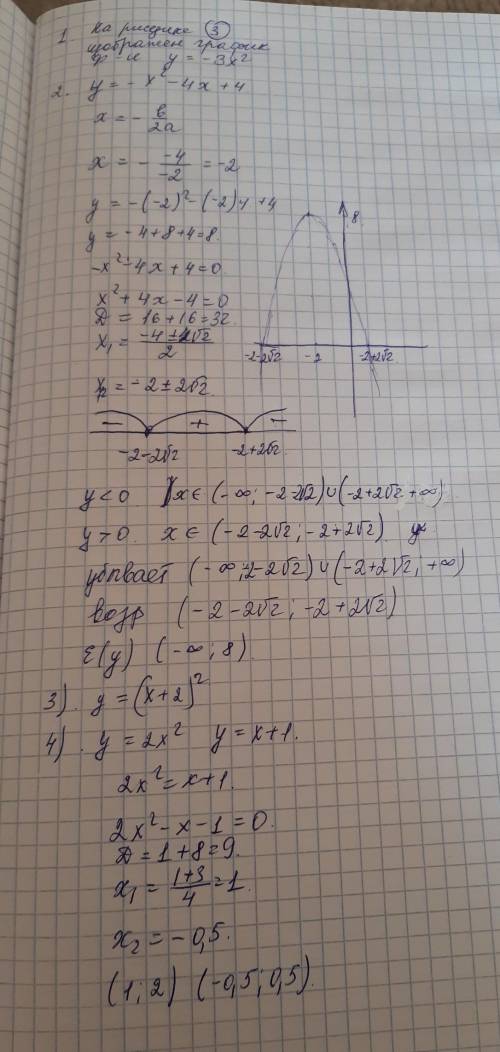 1. На рисунке ③
изображен график
ф-и y = -3x²
2. y = -x² - 4x + 4
x = - в/2a
x = - -4/-2 = -2
y = -(-2)² - (-2)4 + 4
y = -4 + 8 + 4 = 8
-x² - 4x + 4 = 0
x² + 4x - 4 = 0
D = 16 + 16 = 32
x₁ = -4 ± 4√2/2
x₂ = -2 ± 2√2
8
-2-2√2 -2 -2+2√2
- + -
-2-2√2 -2+2√2
y < 0 x ∈ (-∞; -2-2√2) ∪ (-2+2√2; +∞)
y > 0 x ∈ (-2-2√2; -2+2√2)
убывает (-∞; -2-2√2) ∪ (-2+2√2; +∞)
возр (-2-2√2; -2+2√2)
E(y) (-∞; 8)
3) y = (x+2)²
4) y = 2x² y = x+1.
2x² = x+1.
2x² - x - 1 = 0.
D = 1 + 8 = 9.
x₁ = 1+3/4 = 1.
x₂ = -0,5.
(1; 2) (-0,5; 0,5).